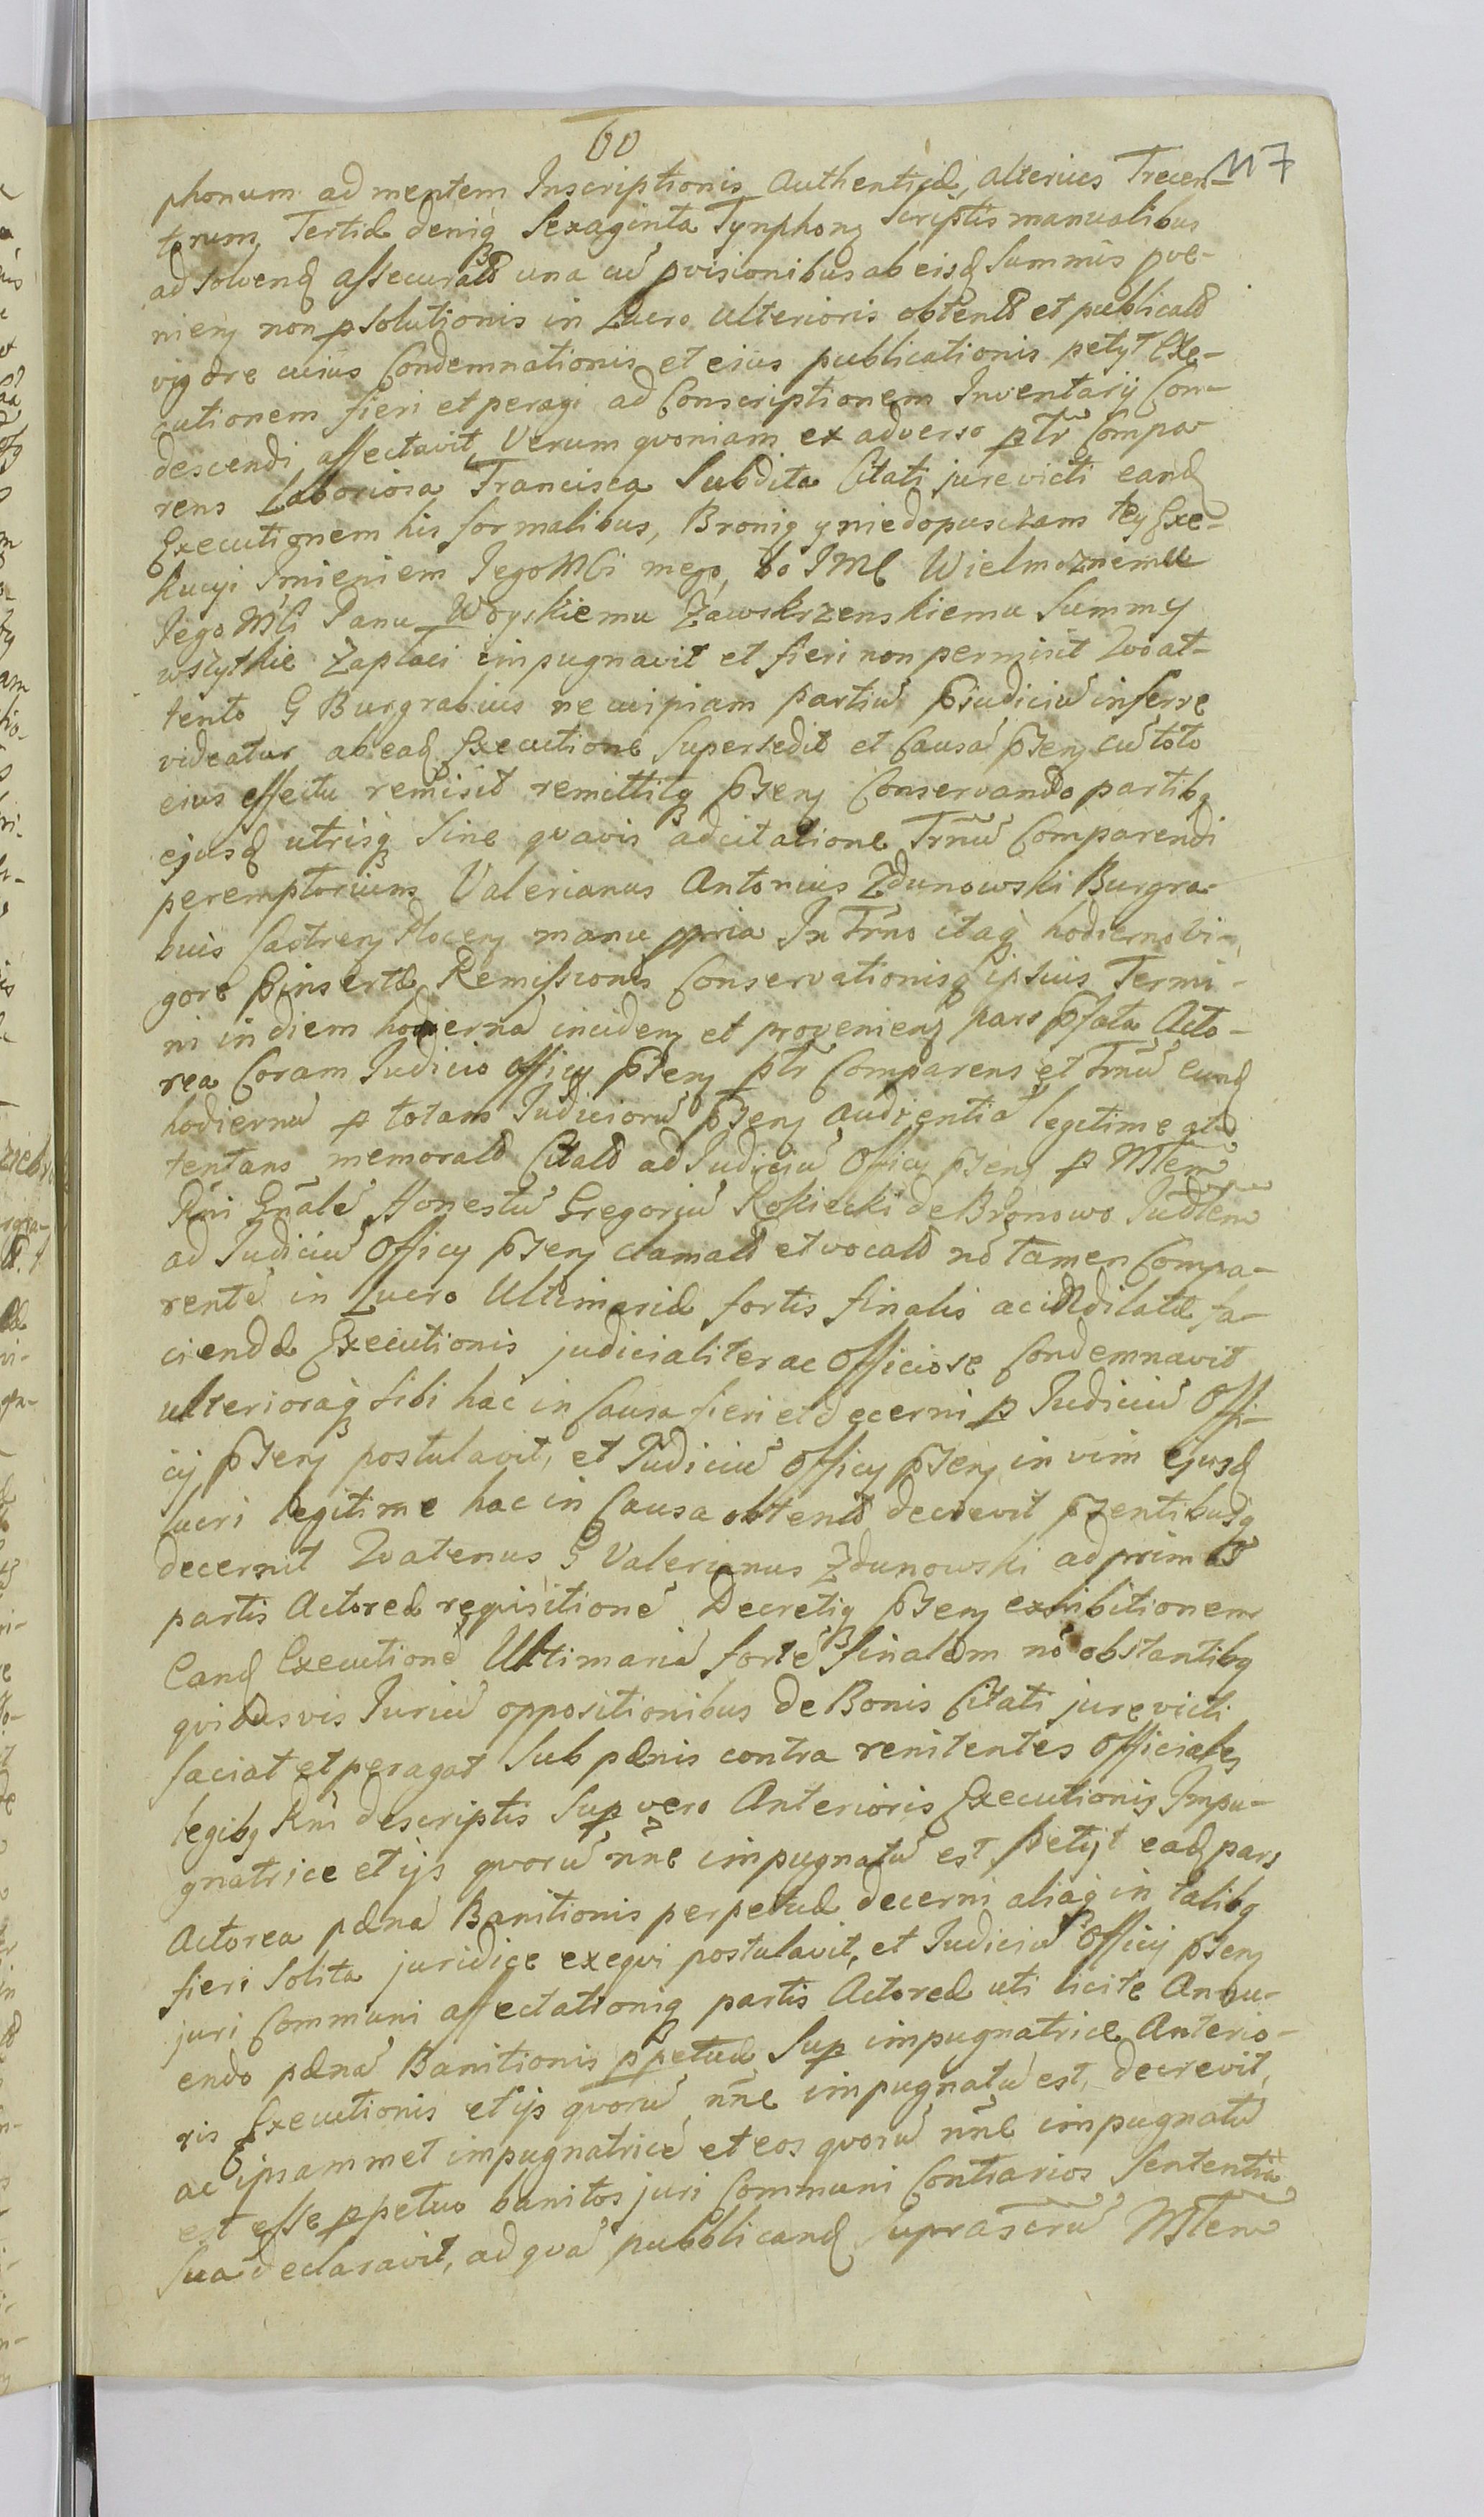 60
117
phonum ad mentem Inscriptionis Authenticæ, alterius Trecen-
torum Tertiæ deniq Sexaginta Tynphonȝ Scriptis manualibus
ad solvend assecurat una cū pvisionibus ab eisd Summis pve-
nienȝ non psolutionis in Lucro Ulterioris obtent et publicat
vigore cuius Condemnationis et eius publicationis petyt Exe-
cutionem fieri et peragi ad Conscriptionem Inventarij Con-
descendi affectavit, Verum qvoniam ex adverso ptr Compa-
rens Laboriosa Francisca Subdita Citati jurevicti eand
Executionem his formalibus, Bronię y niedopusczam tey Exe-
kucyi Imieniem JegoMći mego, bo JMć Wielmoznemu
Jego Mći Panu Woyskiemu Zawskrzenskiemu Summy
wszytkie Zapłaci impugnavit et fieri non permisit Qvo at-
tento G Burgrabius ne cuipiam partiū pjudiciū inferre
videatur ab ead Executione Supersedit et Causā pſenȝ cū toto
eius effectu remisit remittitq pſenȝ Conservando partibq
ejusd utrisq Sine qvavis adcitatione Trnū Comparendi
peremptorium Valerianus Antonius Zdunowski Burgra-
bius Castrenȝ Plocenȝ manu ppria In Trno itaq hodierno Vi-
gore pinsertæ Remissionis Conservationisq ipsius Termi-
ni in diem hodiernā incidenȝ et provenienȝ pars pfata Acto-
rea Coram Judicio Officij pſenȝ ptr Comparens et Trnū eund
hodiernū p totam Judiciorū pſenȝ Audientiā legitime at-
tentans memorat Citat ad Judiciū Officij pſenȝ p Mtem
Rni Gnāle Honestū Gregoriū Rokiecki de Bronowo Judtem
ad Judiciū Officij pſenȝ clamat et vocat nō tamen Compa-
rente in Lucro Ultimariæ fortis finalis ac indilatæ fa-
ciendæ Executionis judicialiter ac Officiose Condemnavit
ulterioraq sibi hac in Causa fieri et decerni p Judiciū Offi-
cij pſenȝ postulavit, et Judiciū Officij pſenȝ in vim ejusd
lucri legitime hac in Causa obtent decrevit pſentibusq
decernit Qvatenus G Valerianus Zdunowski ad prim
partis Actoreæ reqvisitionē Decretiq pſenȝ exhibitionem
Eand Executionē Ultimariā forte finalem nō obstantibq
qvibusvis Juriū oppositionibus de Bonis Citati jurevicti
faciat et peragat Sub pænis contra renitentes Officiales
legibq Rni descriptis Sup vero Anterioris Executionis Impu-
gnatrice et ijs qvorū nne impugnatū est petyt ead pars
Actorea pænā Banitionis perpetuæ decerni aliaq in talibq
fieri Solita juridice exeqvi postulavit, et Judiciū Officij pſenȝ
juri Communi affectationiq partis Actoreæ uti licite Annu-
endo pænā Banitionis ppetuæ Sup impugnatrice Anterio-
ris Executionis et ijs qvorū nne impugnatū est, decrevit,
ac ipsammet impugnatricē et eos qvorū nne impugnatū
est esse ppetuo banitos juri Communi Contrarios Sententia
Sua declaravit, ad qvā pubblicand Suprascrū Mtem